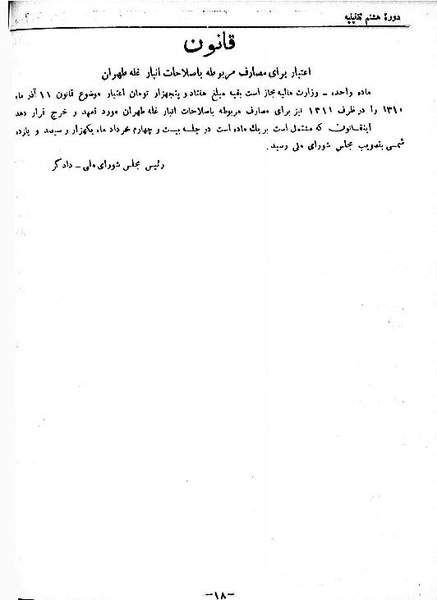 دورهٔ هشتم تقنینیه
قانون
اعتبار برای مصارف مربوطه باصلاحات انبار غله طهران
ماده واحده - وزارت مالیه مجاز است بقیه مبلغ هفتاد و پنجهزار تومان اعتبار موضوع قانون ۱۱ آذر ماه
۱۳۱۰ را در ظرف ۱۳۱۱ نیز برای مصارف مربوطه باصلاحات انبار غله طهران مورد تعهد و خرج قرار دهد
اینقانون که مشتمل است بر یک ماده است در جلسه بیست و چهارم خرداد ماه یکهزار و سیصد و یازده
شمسی بتصویب مجلس شورای ملی رسید.
رئیس مجلس شورای ملی - دادگر
-۱۸-